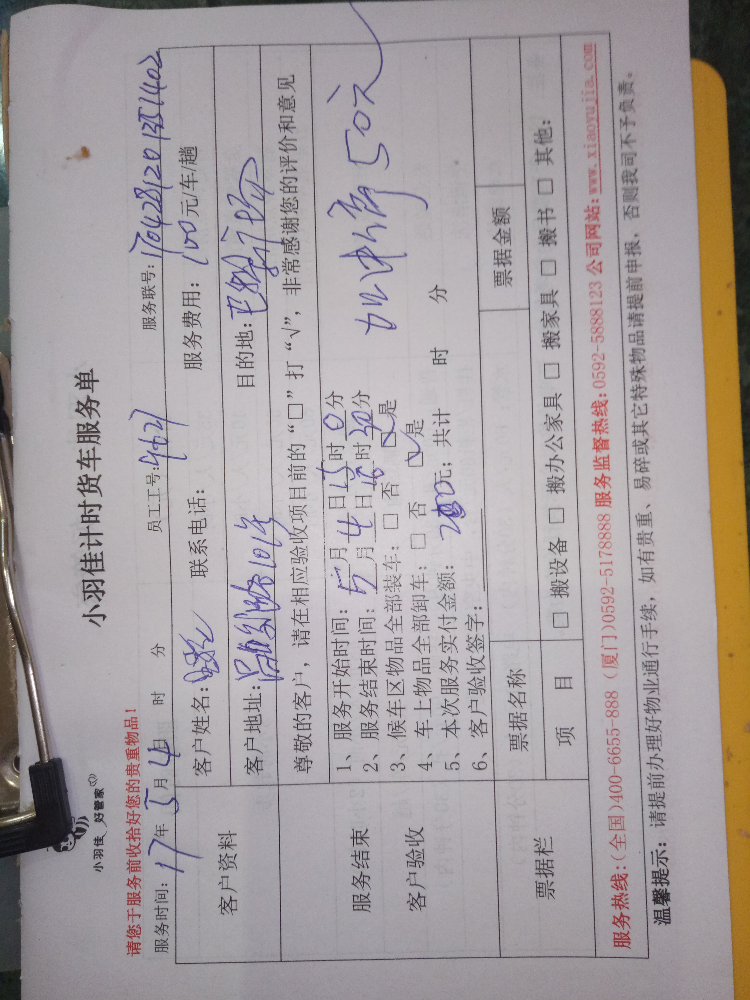 小羽佳 好管家
小羽佳计时货车服务单
请您于服务前收拾好您的贵重物品!
服务时间: 17年 5月 4日 时 分 员工工号: 9621 服务联号: 1704281201351402
客户资料
客户姓名: 联系电话: 服务费用: 100元/车/趟
客户地址: 目的地:
尊敬的客户, 请在相应验收项目前的“□”打“√”, 非常感谢您的评价和意见
服务结束
客户验收
1、服务开始时间: 5月4日15时0分
2、服务结束时间: 5月4日16时30分
3、候车区物品全部装车: □ 否 □ 是
4、车上物品全部卸车: □ 否 □ 是
50元
5、本次服务实付金额: 元; 共计 时 分
6、客户验收签字:
票据栏
票据名称 票据金额
项 目 □ 搬设备 □ 搬办公家具 □ 搬家具 □ 搬书 □ 其他:
服务热线:(全国)400-6655-888 (厦门)0592-5178888 服务监督热线:0592-5888123 公司网站:www.xiaoyujia.com
温馨提示: 请提前办理好物业通行手续, 如有贵重、易碎或其它特殊物品请提前申报, 否则我司不予负责。